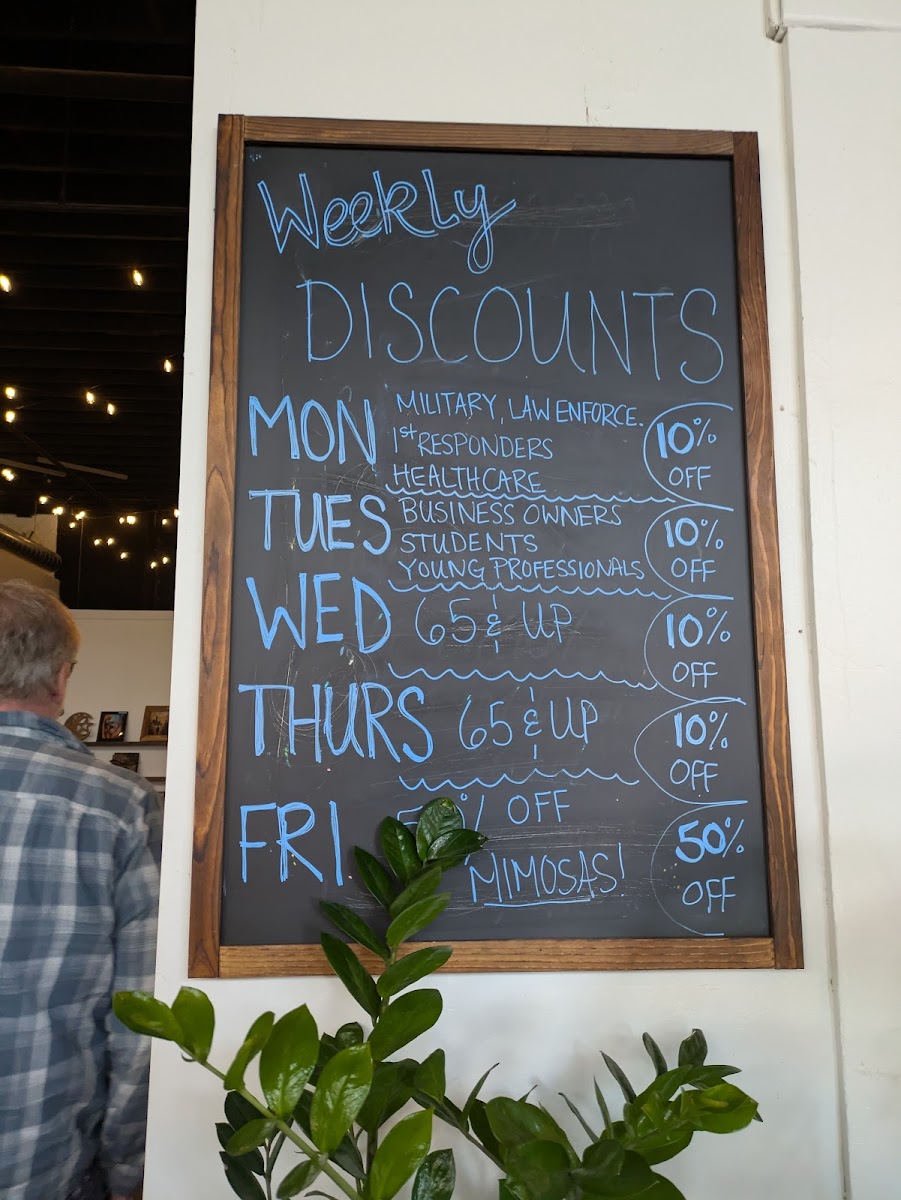 Weekly
DISCOUNTS
MON MILITARY, LAW ENFORCE.
1st RESPONDERS
HEALTHCARE
10% OFF
TUES BUSINESS OWNERS
STUDENTS
YOUNG PROFESSIONALS
10% OFF
WED 65 & UP 10% OFF
THURS 65 & UP 10% OFF
FRI OFF
MIMOSAS!
50% OFF